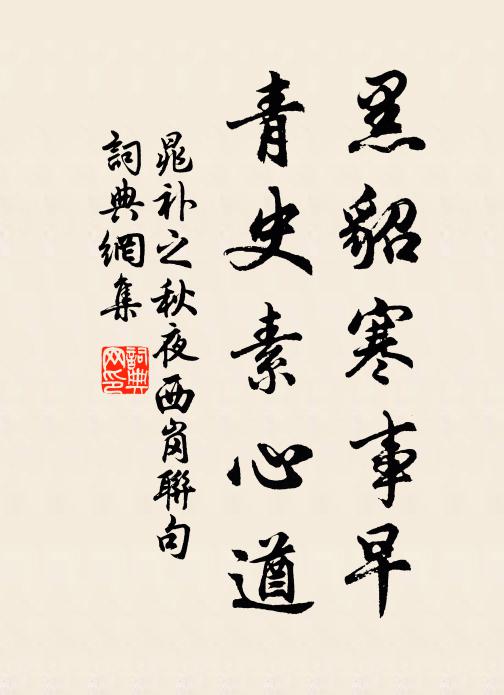 黑貂寒事早
青史素心遒
晁补之秋夜西岗聯句
詞典網集
詞典
网印